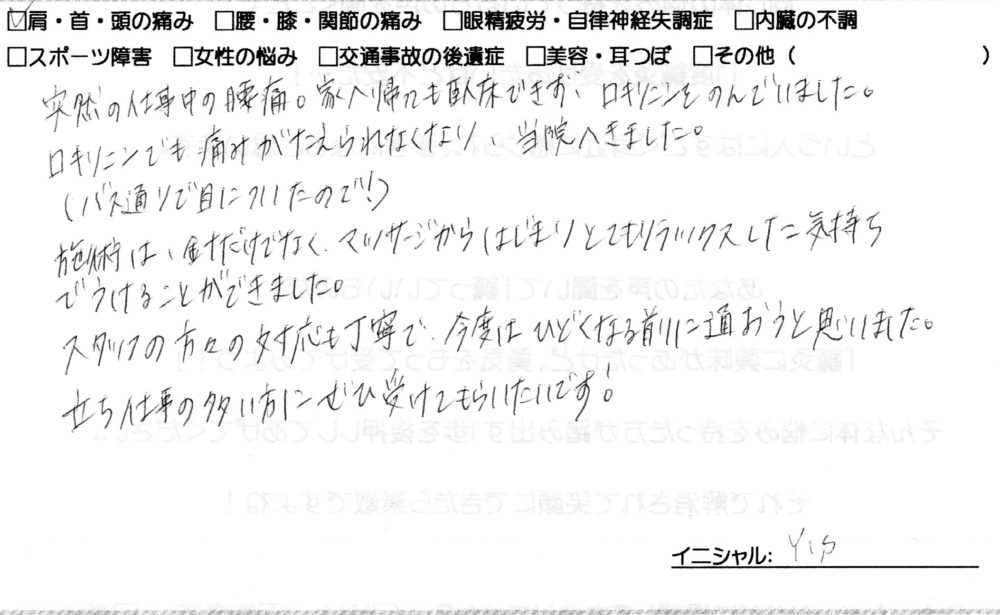 ☑肩・首・頭の痛み □腰・膝・関節の痛み □眼精疲労・自律神経失調症 □内臓の不調
□スポーツ障害 □女性の悩み □交通事故の後遺症 □美容・耳つぼ □その他（ ）
突然の仕事中の腰痛。家へ帰っても臥床できず、ロキソニンをのんでいました。
ロキソニンでも痛みがたえられなくなり、当院へきました。
(バス通りで目についたので!)
施術は、針だけでなく、マッサージからはじまりとてもリラックスした気持ち
でうけることができました。
スタッフの方々の対応も丁寧で、今度はひどくなる前に通おうと思いました。
立ち仕事の多い方にぜひ受けてもらいたいです!
イニシャル: